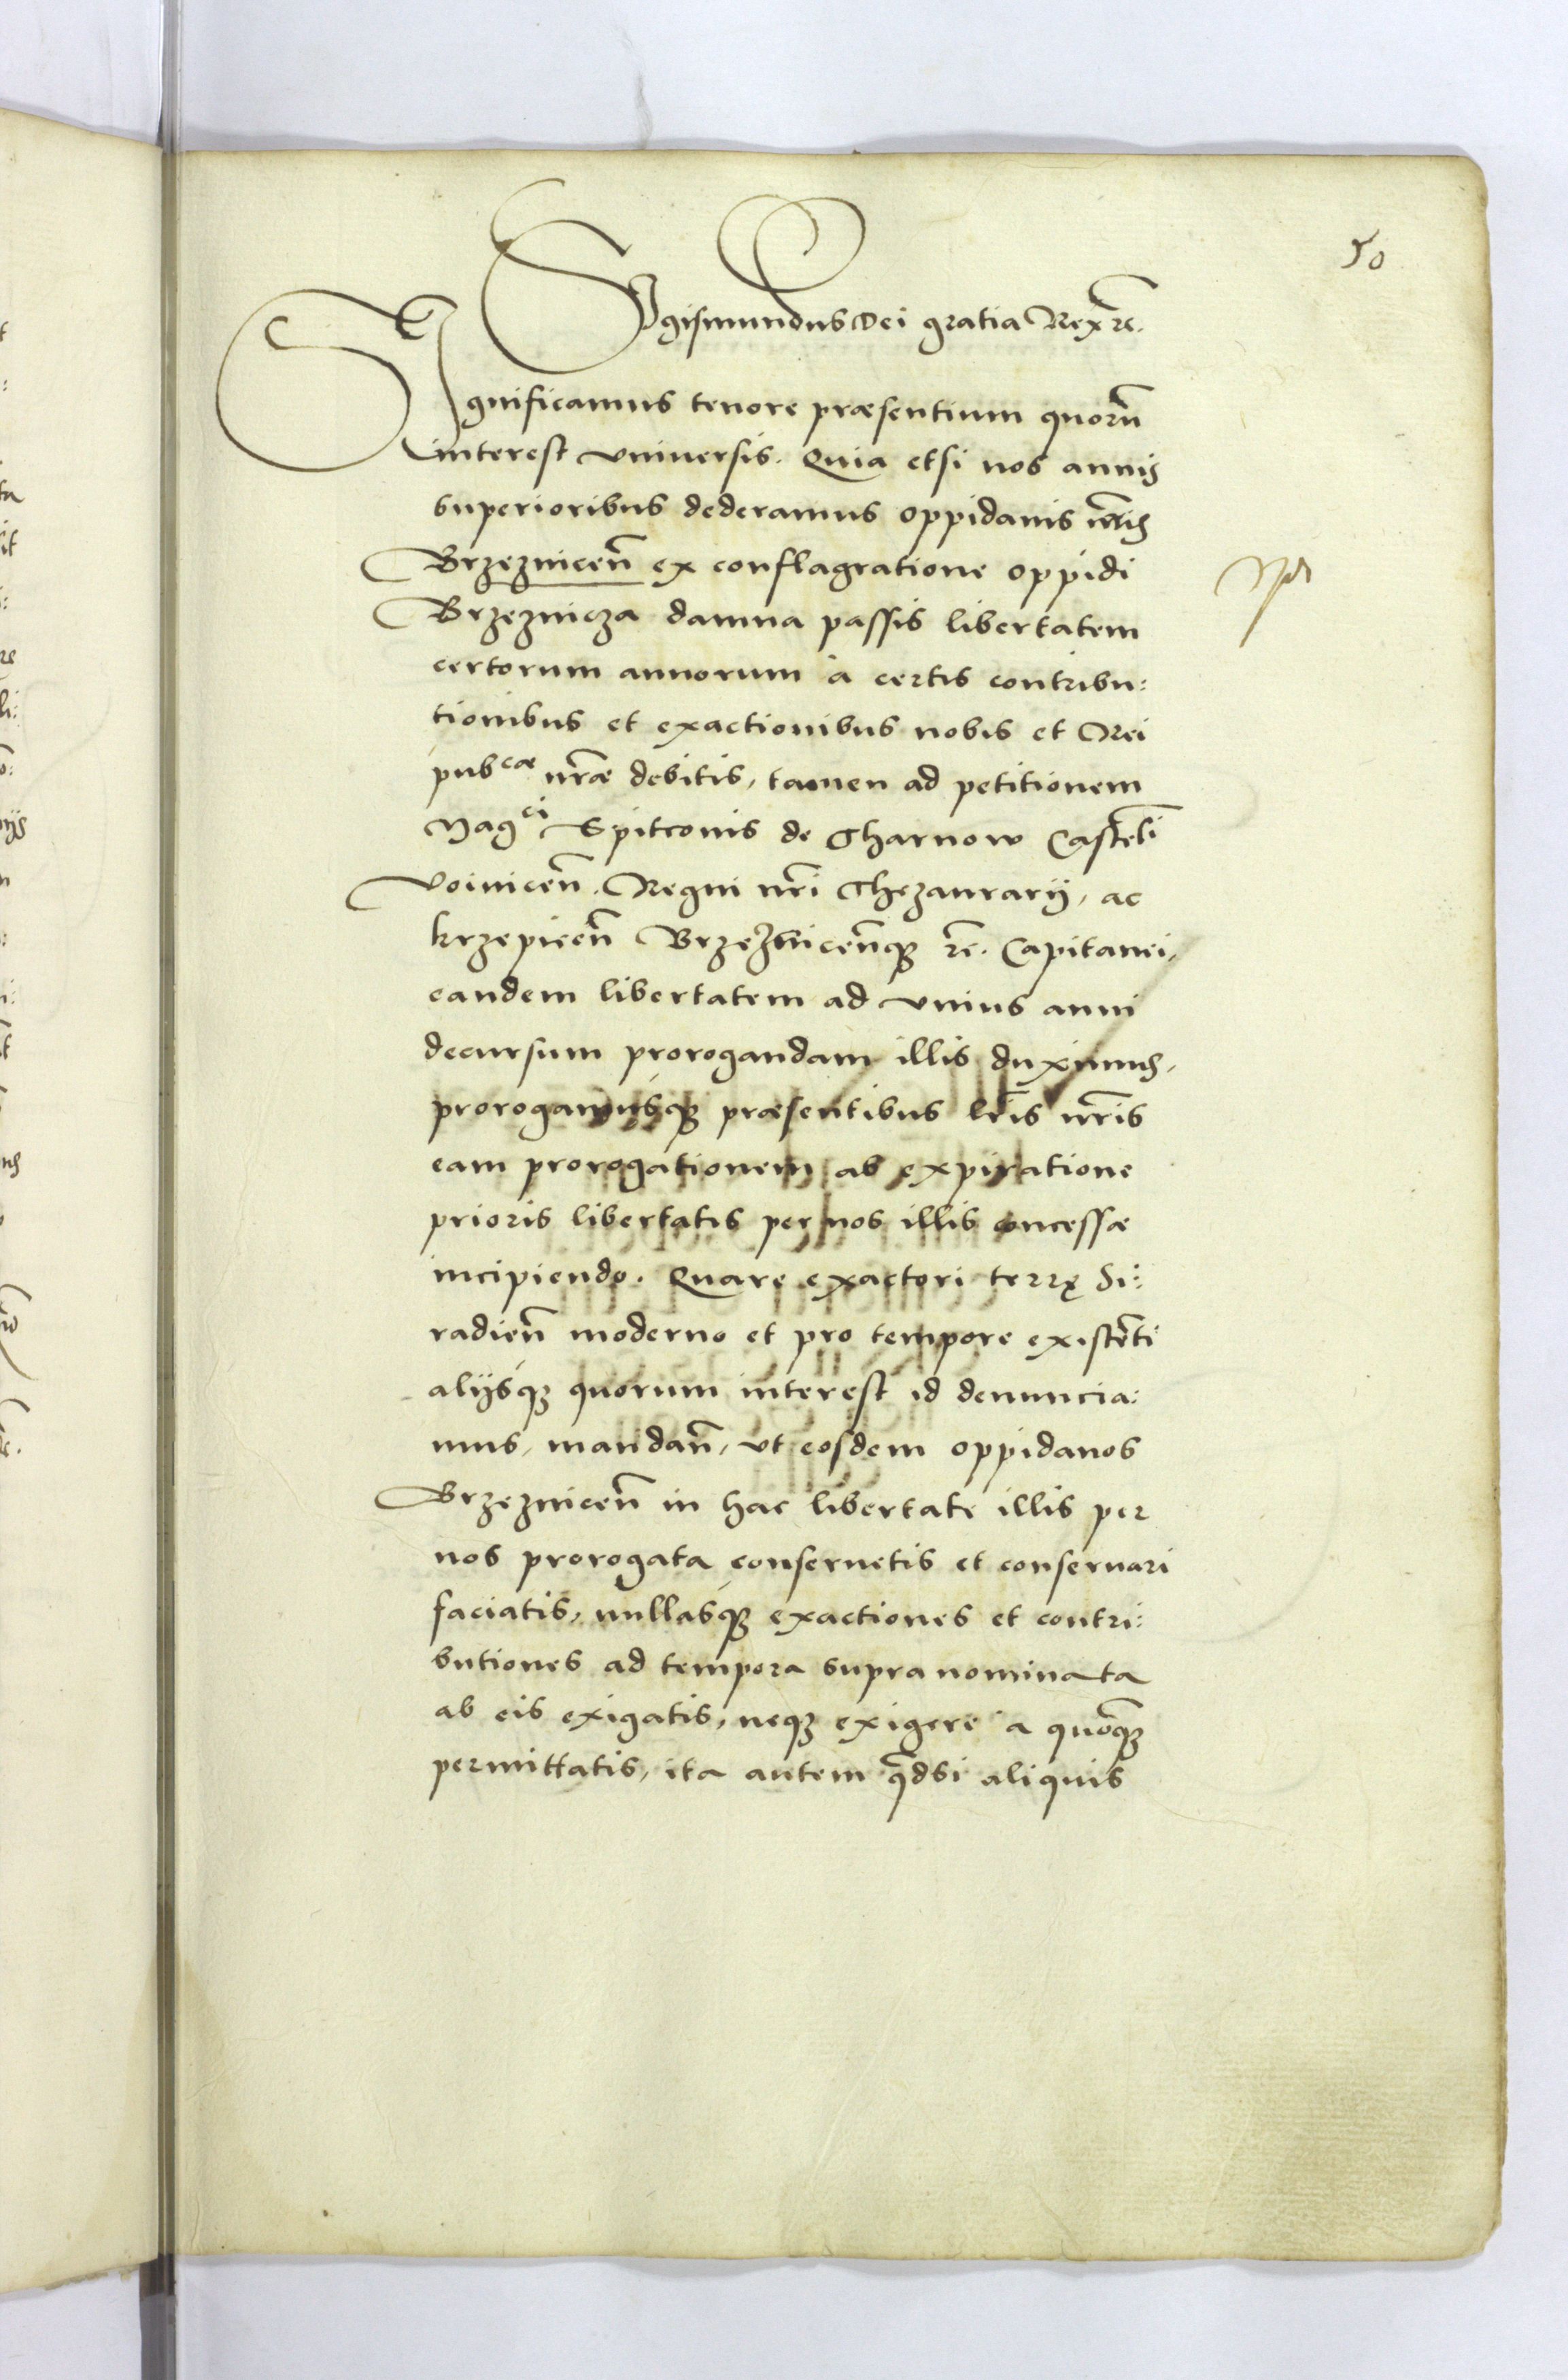 50
Sigismundus Dei gratia Rex etc.
Significamus tenore præsentium quorũ
interest vniuersis. Quia etsi nos annis
superioribus dederamus oppidanis nr̃is
Brzezniceñ ex conflagratione oppidi
Brzeznicza damna passis libertatem
certorum annorum à certis contribu:
tionibus et exactionibus nobis et Rei
pubcæ nr̃æ debitis, tamen ad petitionem
Magci Spitconis de Tharnow Castelĩ
Voiniceñ. Regni nr̃i Thezaurarij, ac
krzepiceñ Brzezniceñq₃ etc. Capitanei,
eandem libertatem ad vnius anni
decursum prorogandam illis duximus,
prorogamusq₃ præsentibus lr̃is nr̃is
eam prorogationem ab expiratione
prioris libertatis per nos illis concessæ
incipiendo. Quare exactori terrę Si:
radieñ moderno et pro tempore existẽti
alijsq₃ quorum interest id denuncia:
mus, mandañ, vt eosdem oppidanos
Brzezniceñ in hac libertate illis per
nos prorogata conseruetis et conseruari
faciatis, nullasq₃ exactiones et contri:
butiones ad tempora supra nominata
ab eis exigatis, neq₃ exigere à quoq₃
permittatis, ita autem qđsi aliquis